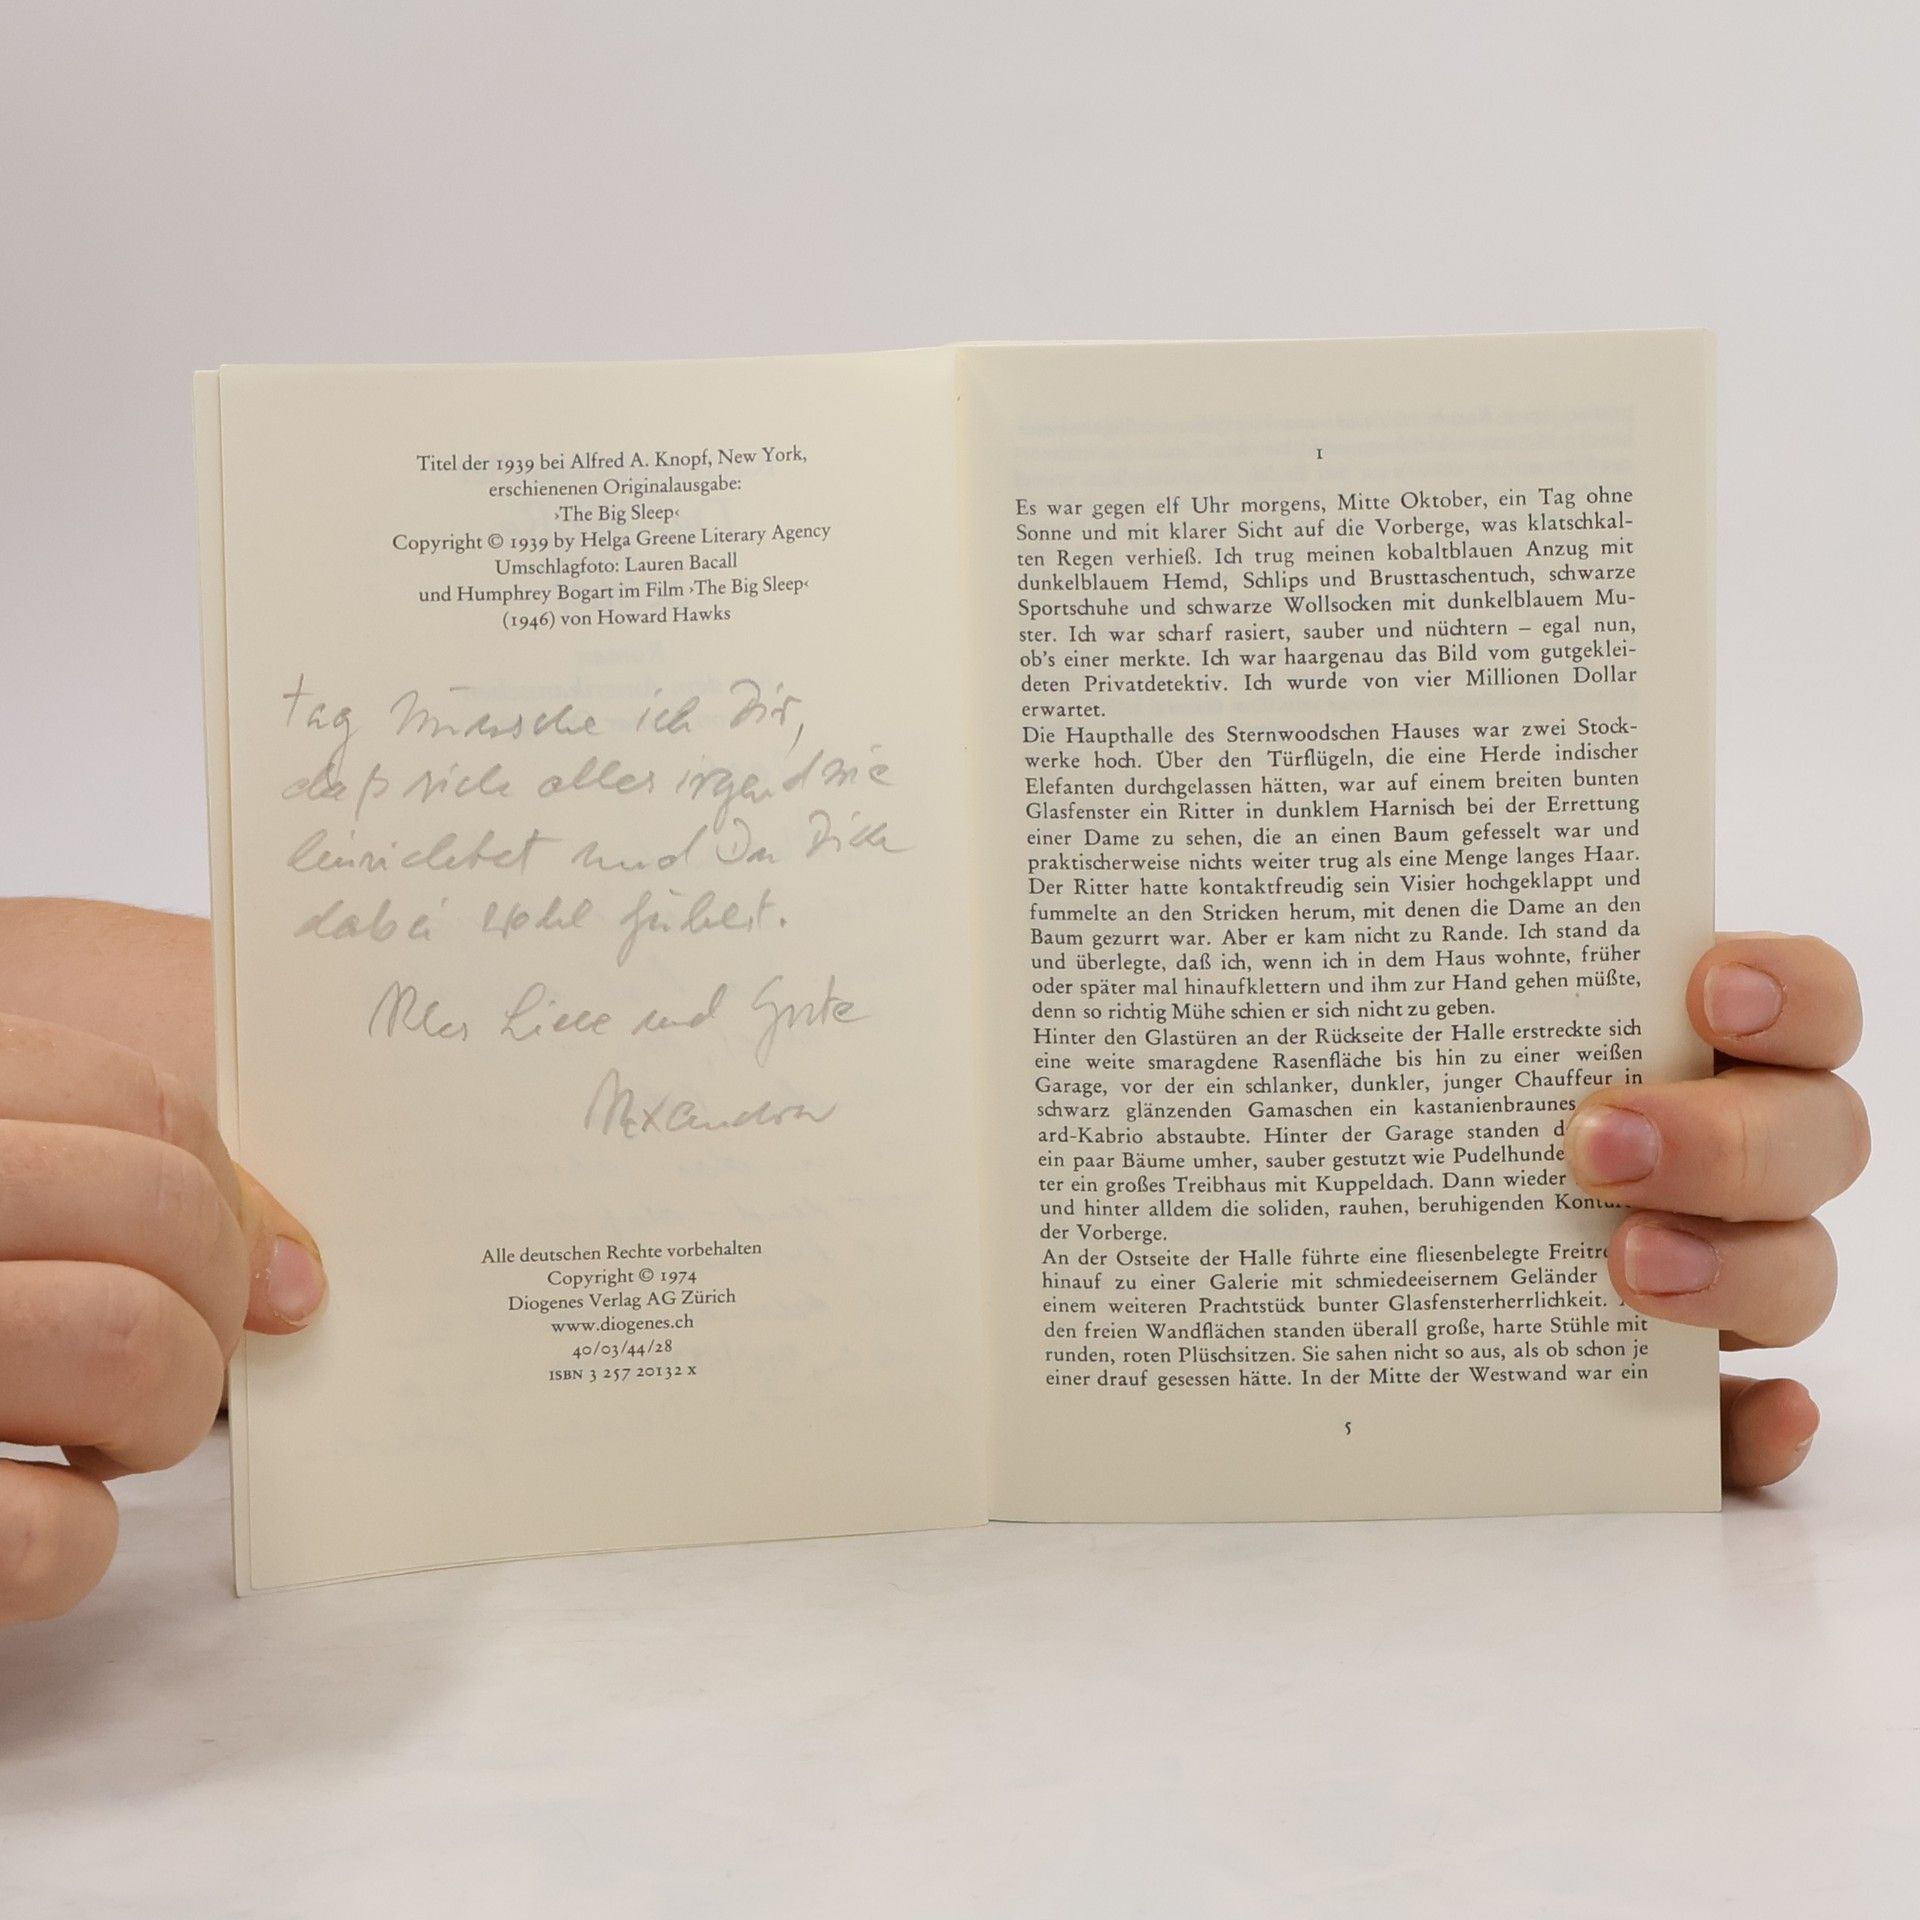 Titel der 1939 bei Alfred A. Knopf, New York,
erschienenen Originalausgabe:
›The Big Sleep‹
Copyright © 1939 by Helga Greene Literary Agency
Umschlagfoto: Lauren Bacall
und Humphrey Bogart im Film ›The Big Sleep‹
(1946) von Howard Hawks
tag wünsche ich Dir,
daß sich alles irgendwie
einrichtet und Du Dich
dabei wohl fühlst.
Alles Liebe und Gute
Alexandra
Alle deutschen Rechte vorbehalten
Copyright © 1974
Diogenes Verlag AG Zürich
www.diogenes.ch
40/03/44/28
ISBN 3 257 20132 X
1
Es war gegen elf Uhr morgens, Mitte Oktober, ein Tag ohne
Sonne und mit klarer Sicht auf die Vorberge, was klatschkal-
ten Regen verhieß. Ich trug meinen kobaltblauen Anzug mit
dunkelblauem Hemd, Schlips und Brusttaschentuch, schwarze
Sportschuhe und schwarze Wollsocken mit dunkelblauem Mu-
ster. Ich war scharf rasiert, sauber und nüchtern – egal nun,
ob's einer merkte. Ich war haargenau das Bild vom gutgeklei-
deten Privatdetektiv. Ich wurde von vier Millionen Dollar
erwartet.
Die Haupthalle des Sternwoodschen Hauses war zwei Stock-
werke hoch. Über den Türflügeln, die eine Herde indischer
Elefanten durchgelassen hätten, war auf einem breiten bunten
Glasfenster ein Ritter in dunklem Harnisch bei der Errettung
einer Dame zu sehen, die an einen Baum gefesselt war und
praktischerweise nichts weiter trug als eine Menge langes Haar.
Der Ritter hatte kontaktfreudig sein Visier hochgeklappt und
fummelte an den Stricken herum, mit denen die Dame an den
Baum gezurrt war. Aber er kam nicht zu Rande. Ich stand da
und überlegte, daß ich, wenn ich in dem Haus wohnte, früher
oder später mal hinaufklettern und ihm zur Hand gehen müßte,
denn so richtig Mühe schien er sich nicht zu geben.
Hinter den Glastüren an der Rückseite der Halle erstreckte sich
eine weite smaragdene Rasenfläche bis hin zu einer weißen
Garage, vor der ein schlanker, dunkler, junger Chauffeur in
schwarz glänzenden Gamaschen ein kastanienbraunes
ard-Kabrio abstaubte. Hinter der Garage standen
ein paar Bäume umher, sauber gestutzt wie Pudelhunde
ter ein großes Treibhaus mit Kuppeldach. Dann wieder
und hinter alldem die soliden, rauhen, beruhigenden
der Vorberge.
An der Ostseite der Halle führte eine fliesenbelegte
hinauf zu einer Galerie mit schmiedeeisernem Geländer
einem weiteren Prachtstück bunter Glasfensterherrlichkeit.
den freien Wandflächen standen überall große, harte Stühle mit
runden, roten Plüschsitzen. Sie sahen nicht so aus, als ob schon je
einer drauf gesessen hätte. In der Mitte der Westwand war ein
5